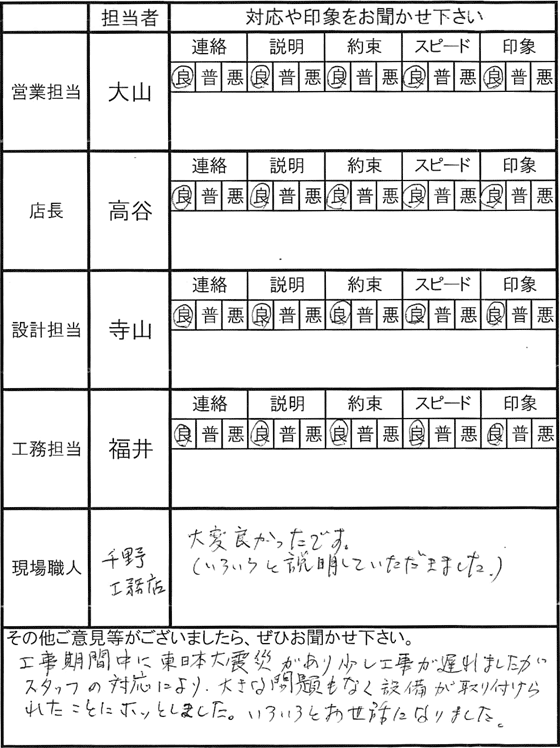 担当者 対応や印象をお聞かせ下さい
連絡 説明 約束 スピード 印象
営業担当 大山 良 普 悪 良 普 悪 良 普 悪 良 普 悪 良 普 悪
連絡 説明 約束 スピード 印象
店長 高谷 良 普 悪 良 普 悪 良 普 悪 良 普 悪 良 普 悪
連絡 説明 約束 スピード 印象
設計担当 寺山 良 普 悪 良 普 悪 良 普 悪 良 普 悪 良 普 悪
連絡 説明 約束 スピード 印象
工務担当 福井 良 普 悪 良 普 悪 良 普 悪 良 普 悪 良 普 悪
現場職人
千野
工務店
大変良かったです。
(いろいろと説明していただきました。)
その他ご意見等がございましたら、ぜひお聞かせ下さい。
工事期間中に東日本大震災があり少し工事が遅れましたが
スタッフの対応により、大きな問題もなく設備が取り付けら
れたことにホッとしました。いろいろとお世話になりました。